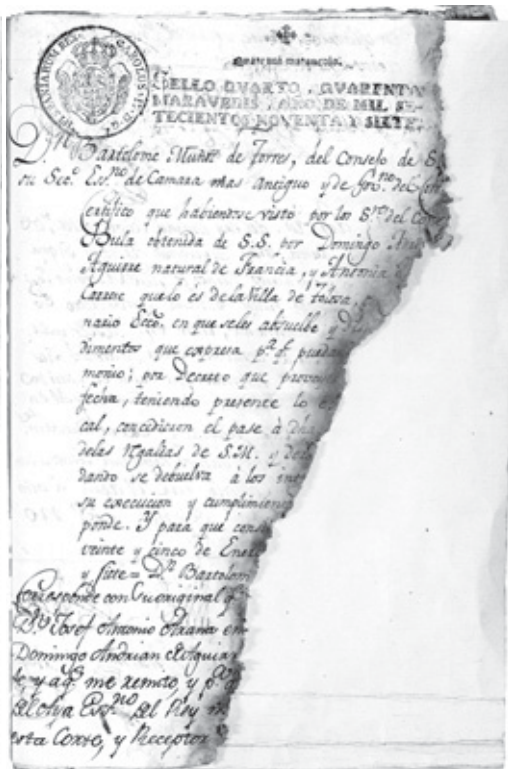 HISPANIARUM REX CAROLUS IV D. G.
Quarenta maravedis.
SELLO QVARTO, QVARENTA
MARAVEDIS, AÑO DE MIL SE-
TECIENTOS NOVENTA Y SIETE.
Dn. Bartolome Muñoz de Torres, del Consejo de S.
su Secº. Essno. de Camara mas Antiguo y de Govno. del
Certifico que habiendose visto por los Sres. del Con
Bula obtenida de S.S. por Domingo An
Aguirre natural de Francia, y Antonia
Carese que lo es de la Villa de Tolosa,
nario Ecco. en que seles absuelbe y Di
dimentos que expresa pª. qe. puedan
monio; por Decreto que proveye
fecha, teniendo presente lo e
cal, concidieron el pase à dha
delas Regalias de S.M. y de
dando se debuelva à los int
su execucion y cumplimien
ponde. Y para que cons
veinte y cinco de Ene
y siete = Dn. Bartolom
Corresponde con su original q
Dn. Josef Antonio Arana en
Domingo Andrian de Aguir
le, y a qe. me remito, y pº. q
Essno. del Rey
esta Corte, y Receptor